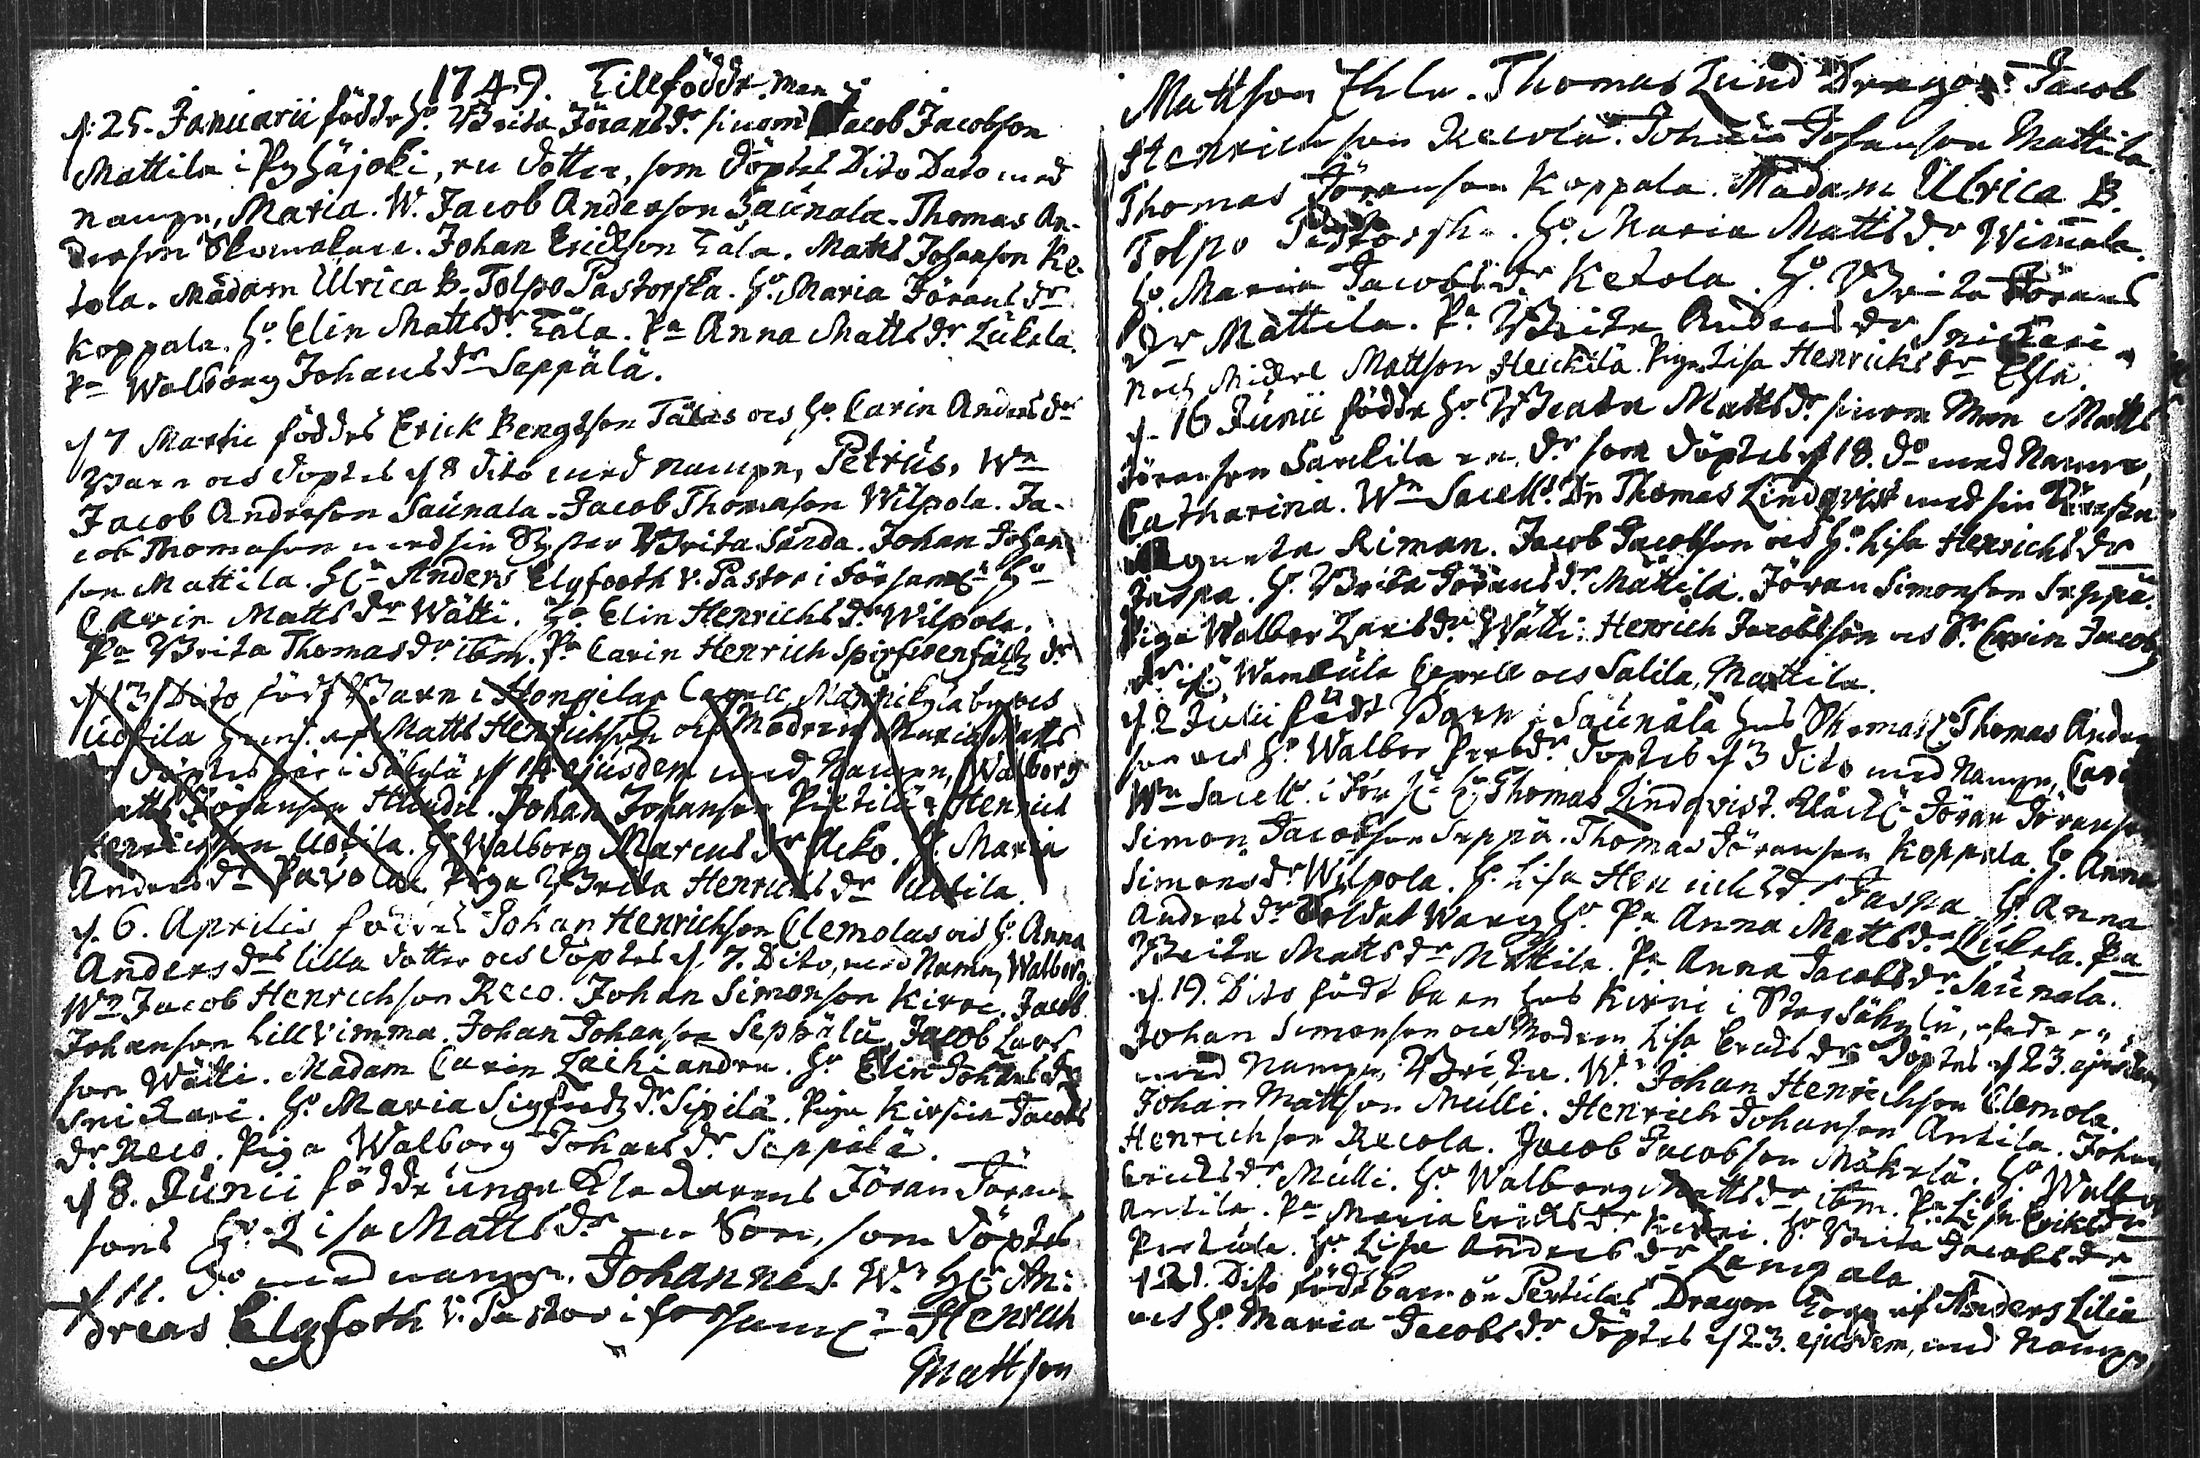 1749. Tillfödde.
d: 25. Januarii födde H:o Brita Jörans dr sinom Man Jacob Jacobson
Mattila i Pyhäjoki, en dotter, som döptes Dito Dato med
nampn, Maria. W. Jacob Anderson Saünala. Thomas An-
derson Skomakare. Johan Erickson Täla. Matts Johanson Ke-
tola. Madam Ulrica B. Polpo Pastorska. H:o Maria Jörans dr
Koppala. H:o Elin Matts dr Täla. Pa Anna Matts dr Lükela.
Pa Walborg Johans dr Seppälä.
d 7 Martii föddes Erick Bengtson Tälas och H:o Carin Anders dr
Barn och döptes d 8 dito med nampn, Petrüs, Wn
Jacob Anderson Saünala. Jacob Thomason Wilpola. Ja-
cob Thomason med sin Syster Brita Sanda. Johan Johan
son Mattila. Anders Elgfooth v. Pastor i Församl: H:o
Carin Matts dr Wätti. H:o Elin Henrichs dr Wilpola.
Pa Brita Thomas dr ibm. Pa Carin Henrich dr
d 13 Dito födt Barn i Hongilax Capell, by och
Uotila af Matts Henrichson och Modren Maria Matts
döptes här i Säkylä d 14 ejusdem med Nampn, Walborg
Matts Johanson Johan Johanson Pietilä. Henrich
Henrichson Uotila. H:o Walborg Marcus dr Acko. H. Maria
Anders dr Pavola. Piga Brita Henrichs dr Uotila.
d. 6. Aprilis föddes Johan Henrichson Clemolas och H:o Anna
Anders drs lilla dotter och döptes d. 7. Dito, med Namn, Walborg.
Wn Jacob Henrichson Reco. Johan Simonson Kirre. Jacob
Johanson Lillvimma. Johan Johanson Seppälä. Jacob Lars
son Wätti. Madam Carin Zachiandra. H:o Elin Johans dr
Snickari. H:o Maria Sigfredz dr Sipilä. Piga Kirstin Jacobs
dr Reco. Piga Walborg Johans dr Seppälä.
d 8. Jünii födde unge Klockarens Jöran Jöran-
sons H:o Lisa Matts dr en Son, som döptes
d 11. do med nampn, Johannes. Wn An:
dreas Elgfoth v. Pastor i Henrich
Mattson
Mattson Ehla. Thomas Lund Dragon: Jacob
Henrichson Recola. Johan Johanson Mattila.
Thomas Jöranson Koppala. Madam Ulrica B.
Polpo Pastorska. H:o Maria Matts dr Wimala.
H:o Maria Jacobs dr Ketola. H:o Brita Jörans
dr Mattila. Pa Brita Anders dr Snickari.
Noch Michel Mattson Heickilä. Piga Lisa Henricks dr Ehla.
d. 16 Jünii födde H:o Beata Matts dr sinom Man Matts
Jöranson Saukila en dr som döptes d 18. do med Namn,
Catharina. Wn Sacell: Dn Thomas Lindqvist med sin
Agneta Riman. Jacob Jacobson och H:o Lisa Henrichs dr
Jaspa. H. Brita Jörans dr Mattila. Jöran Simonson Seppä.
Piga Walbor Lars dr Wätti. Henrich Jacobsson och Carin Jacobs
dr Capell och Salila, Mattila.
d 2 Julii födt Barn i Saünala hos Thomas Ander
son och H:o Walbor döptes d 3 dito med Nampn, Carin
Wn Sacell: i Thomas Lindqvist. Klåck: Jöran Jöranson
Simon Jacobson Seppä. Thomas Jöranson Koppala. H:o Anna
Simons dr Wilpola. H. Lisa Henrichs dr Jaspa. H. Anna
Anders dr Soldat Warg H:o Pa Anna Matts dr Lükela. Pa
Brita Matts dr Mattila. Pa Anna Jacobs dr Saünala.
d. 19. Dito födt barn hos Kirri i Stor Säkylä, af
Johan Simonson och Modren Lisa Ericks dr döptes d 23. ejusdem
med Nampn, Brita. W. Johan Henrichson Clemola.
Johan Mattson Mülli. Henrich Johanson Antila. Johan
Henrichson Recola. Jacob Jacobson Mäkelä. H:o Walbor
Ericks dr Mülli. H:o Walborg Matts dr ibm. Pa Lisa Ericks dr
Antila. Pa Maria Ericks dr Kirri. H:o Brita Jacobs dr
Pertüla. H:o Lisa Anders dr Lampala
d 21. Dito födt barn på Pertülas Dragon Torp af Anders Lilia
och H:o Maria Jacobs dr döptes d 23. ejusdem, med Nampn